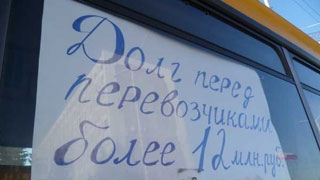 Долг перед
перевозчиками
более 12 млн.руб.